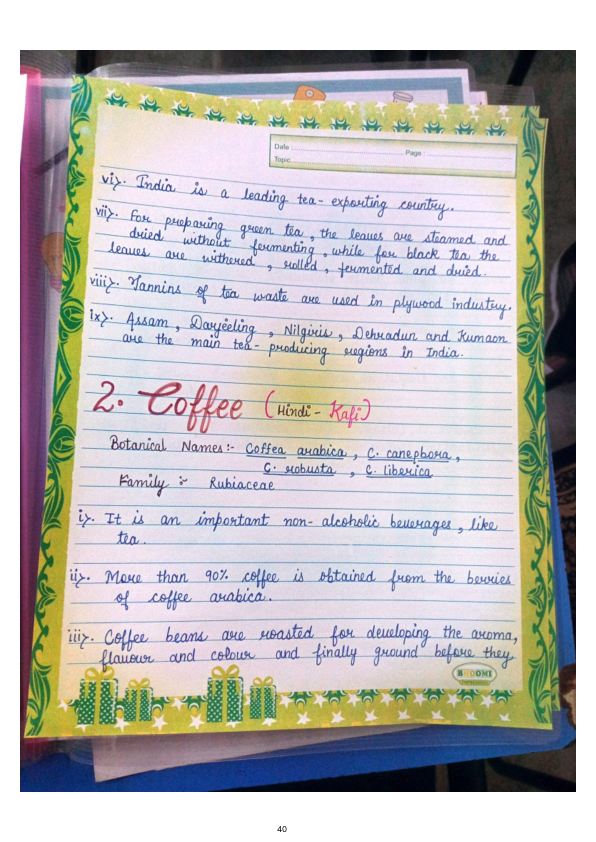 Date
Page
Topic
vi). India is a leading tea- exporting country.
vii). For preparing green tea, the leaves are steamed and
dried without fermenting, while for black tea the
leaves are withered, rolled, fermented and dried.
viii). Tannins of tea waste are used in plywood industry.
ix). Assam, Darjeeling, Nilgiris, Dehradun and Kumaon
are the main tea- producing regions in India.
2. Coffee (Hindi - Kafi)
Botanical Names:- Coffea arabica, C. canephora,
C. robusta, C. liberica
Family :- Rubiaceae
i). It is an important non- alcoholic beverages, like
tea.
ii). More than 90% coffee is obtained from the berries
of coffee arabica.
iii). Coffee beans are roasted for developing the aroma,
flavour and colour and finally ground before they
BHOOMI
40